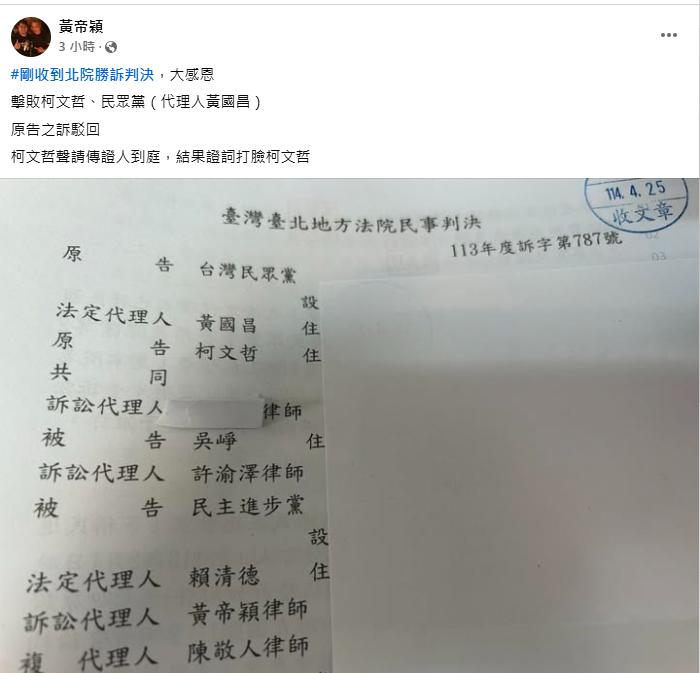 黃帝穎
3 小時
#剛收到北院勝訴判決，大感恩
擊敗柯文哲、民眾黨（代理人黃國昌）
原告之訴駁回
柯文哲聲請傳證人到庭，結果證詞打臉柯文哲
114.4.25
收文章
臺灣臺北地方法院民事判決
113年度訴字第787號
02
03
原 告 台灣民眾黨
設
法定代理人 黃國昌 住
原 告 柯文哲 住
共 同
訴訟代理人 律師
被 告 吳崢 住
訴訟代理人 許渝澤律師
被 告 民主進步黨
設
法定代理人 賴清德 住
訴訟代理人 黃帝穎律師
複 代理人 陳敬人律師